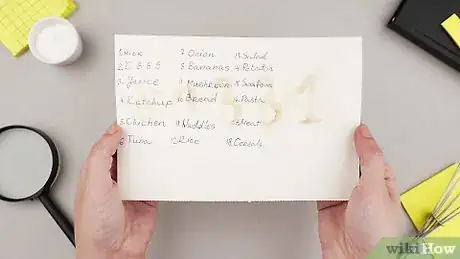 1. Milk
2. EGGS
3. Juice
4. Ketchup
5. Chicken
6. Tuna
7. Onion
8. Bananas
9. Mushroom
10. Bread
11. Noddles
12. Rice
13. Salad
14. Potatos
16. Pasta
17. Meat
18. Cereals
wikiHow